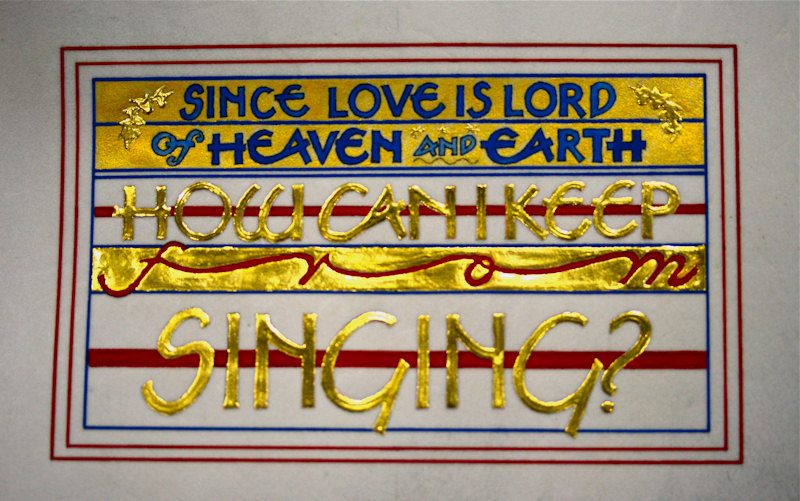 SINCE LOVE IS LORD
of HEAVEN AND EARTH
HOW CAN I KEEP
from
SINGING?